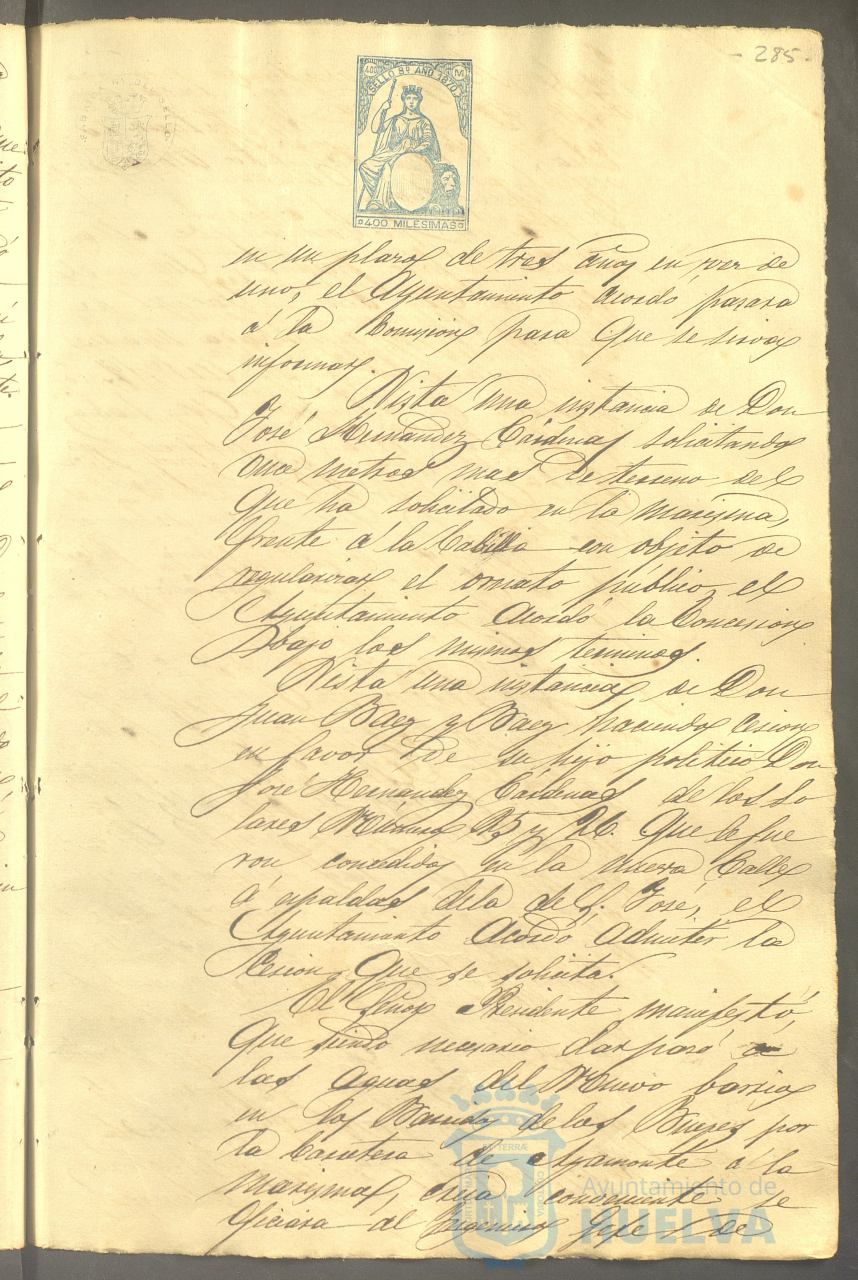 - 285 -
400 M
SELLO 8º AÑO 1870
400 MILESIMAS
en un plazo de tres años en vez de
uno, el Ayuntamiento acordó pasara
á la Comision para que se sirva
informar.
Vista una instancia de Don
José Hernandez Cárdenas solicitando
once metros mas de terreno del
que ha solicitado en la marisma,
frente á la Cabilla con objeto de
regularizar el ornato público, el
Ayuntamiento acordó la Concesion
bajo los mismos terminos.
Vista una instancia de Don
Juan Baez y Baez haciendo cesion
en favor de su hijo politico Don
José Hernandez Cárdenas de los so
lares Número 25 y 26 que le fue
ron concedidos en la nueva Calle
á espaldas dela de S. José, el
Ayuntamiento acordó admitir la
Cesion que se solicita.
El Señor Presidente manifestó,
que siendo necesario dar paso á
las aguas del Nuevo barrio
en los de los por
la Carretera de Ayamonte á la
marisma, creia conveniente se
oficiara al Ingeniero Gefe de
Ayuntamiento de
HUELVA